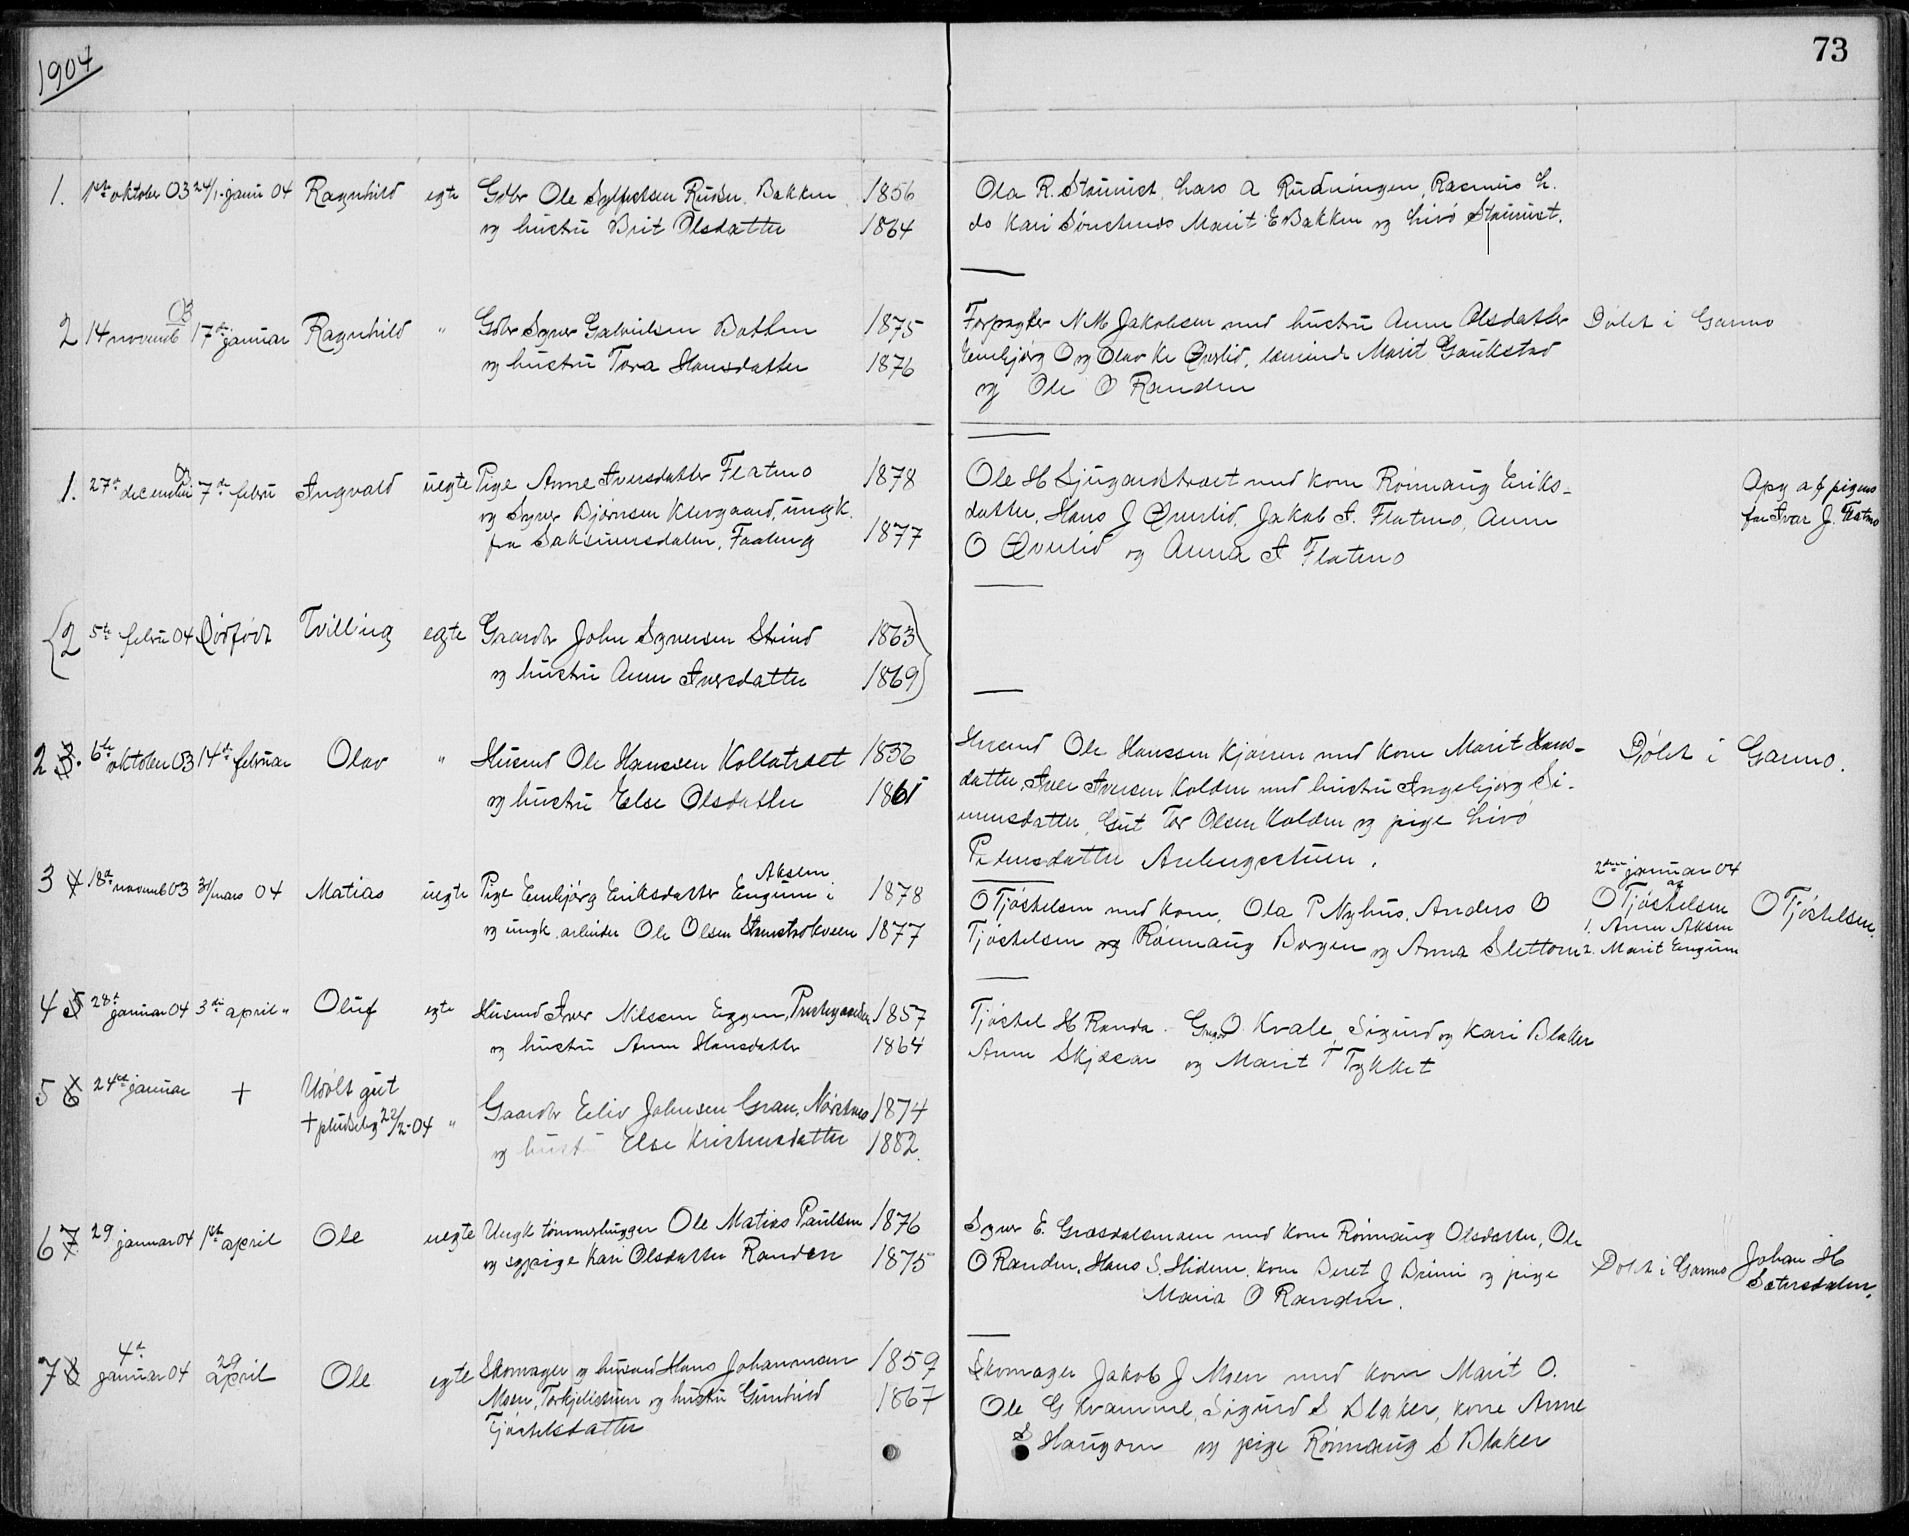 1904
73
1. 1ste oktober 03 24/1. janu 04 Ragnhild egte Gdbr Ole Syl Ruden Bakken 1856
og hustru Brit Olsdatter 1864
Ola R. Stamest, Lars A Rudningen, Rasmus L.
do Kari Marit E Bakken og Livö Stamest.
2 14 novemb 03 17de januar Ragnhild " Gdbr Syver Gabrielsen Botten 1875
og hustru Tora Hansdatter 1876
Forpagter N M Jakobsen med hustru Anne Olsdatter Døbt i Garmo
Embjørg O og Olav K Øverlid, Marit Gaukstad
og Ole O Randen
1. 27de december 03 7de febru Ingvald uegte Pige Anne Iversdatter Flatmo 1878
og Syver Bjørnsen Klevgaard, ungk.
fra Saksumsdalen, Faaberg 1877
Ole H Sjugardstræt med kone Rønnaug Eriks-
datter, Hans J Øverlid, Jakob I. Flatmo, Anne
O Øverlid og Anna I Flatmo
Opg af pigens
far Ivar J. Flatmo
2 5te febru 04 Dødfødt Tvilling egte Gaardbr John Syversen Strind 1863
og hustru Anne Iversdatter 1869
2 3. 6te oktober 03 14de februar Olav " Husmd Ole Hanssen Kollatræet 1856
og hustru Else Olsdatter 1861
Husmd Ole Hanssen Kjønnen med kone Marit Hans-
datter, Iver Iversen Kolden med hustru Ingebjørg Si-
mensdatter, Gut Tor Olsen Kolden og pige Livö
Pedersdatter
Døbt i Garmo.
3 4 18de novemb 03 31/mars 04 Matias uegte Pige Embjørg Eriksdatter Engum i Aksen 1878
og ungk. arbeider Ole Olsen 1877
O Tjøstelsen med kone, Ola P Nyhus, Anders O
Tjøstelsen og Rønnaug Borgen og Anna Slettom
2den januar 04
af
O Tjøstelsen
1. Anne Aksen
2. Marit Engum
O Tjøstelsen.
4 5 28de januar 04 3die april " Oluf egte Husmd Iver Nilssen Eggen, 1857
og hustru Anne Hansdatter 1864
Tjøstel H Randa. O. Kvale, Sigurd og Kari Blaker
Anne Skjæsar og Marit T Tykket
5 6 24de januar + Udøbt gut
+ pludselig 22/2-04 " Gaardbr Eiliv Johnsen Gran, 1874
og hust Else Kristensdatter 1882.
6 7 29 januar 04 1ste april Ole uegte Ungk tømmerhugger Ole Matias Paulsen 1876
og sypige Kari Olsdatter Randen 1875
Syver E. Græsdalsmoen med kone Rønnaug Olsdatter, Ole
O Randen, Hans S. Hidem, kone Beret J Brimi og pige
Maria O Randen.
Døbt i Garmo
Johan H
Sætersdalen.
7 8 4de januar 04 29 april Ole egte Skomager og husmd Hans Johannesen 1859
Moen, og hustru Gunhild 1867
Tjøstelsdatter
Skomager Jakob J Moen med kone Marit O.
Ole G Kramme, Sigurd S Blaker, kone Anne
S Haugom og pige Rønnaug S Blaker